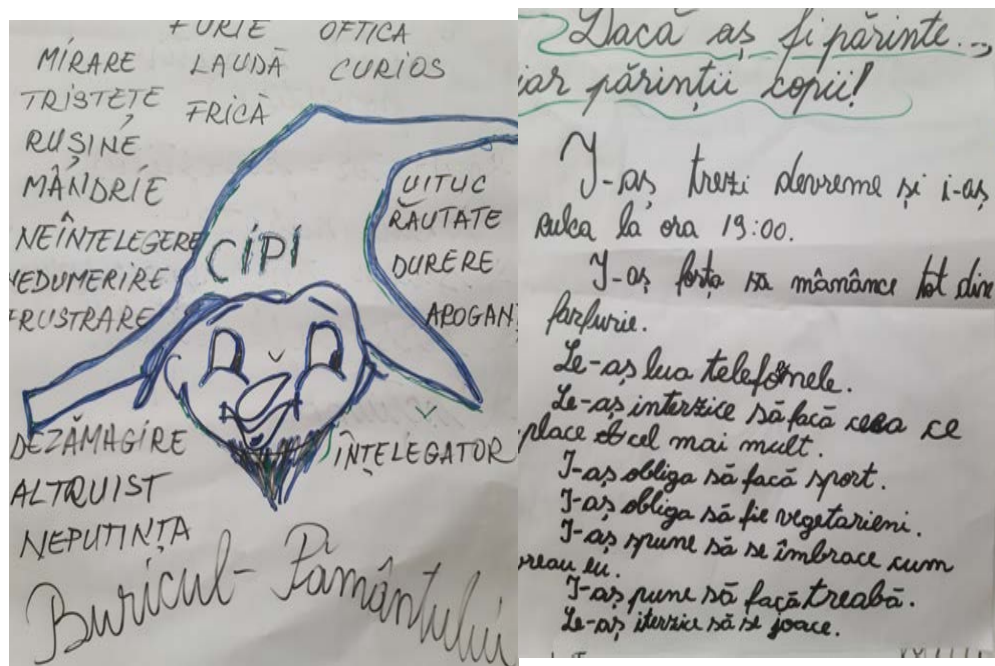 FURIE OFTICA
MIRARE LAUDĂ CURIOS
TRISTEȚE FRICĂ
RUȘINE
MÂNDRIE UITUC
RĂUTATE
NEÎNTELEGERE CIPI DURERE
NEDUMERIRE
FRUSTRARE AROGANȚ
DEZĂMAGIRE ÎNȚELEGATOR
ALTRUIST
NEPUTINȚA
Buricul-Pământului
Dacă aș fi părinte...,
iar părinții copii!
I-aș trezi devreme și i-aș
culca la ora 19:00.
I-aș forța să mâmânce tot din
farfurie.
Le-aș lua telefonele.
Le-aș interzice să facă ceea ce
place cel mai mult.
I-aș obliga să facă sport.
I-aș obliga să fie vegetarieni.
I-aș spune să se îmbrace cum
vreau eu.
I-aș pune să facă treabă.
Le-aș iterzice să se joace.